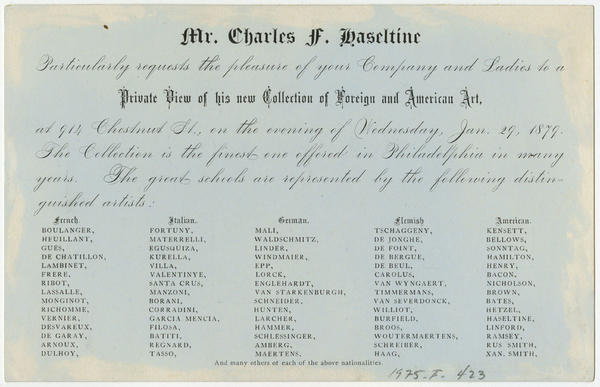 Mr. Charles F. Haseltine
Particularly requests the pleasure of your Company and Ladies to a
Private View of his new Collection of Foreign and American Art,
at 914 Chestnut St., on the evening of Wednesday, Jan. 29, 1879.
The Collection is the finest one offered in Philadelphia in many
years. The great schools are represented by the following distin-
guished artists:
French. Italian. German. Flemish American.
BOULANGER, FORTUNY, MALI, TSCHAGGENY, KENSETT,
HEUILLANT, MATERRELLI, WALDSCHMITZ, DE JONGHE, BELLOWS,
GUES, EGUSQUIZA, LINDER, DE FOINT, SONNTAG,
DE CHATILLON, KURELLA, WINDMAIER, DE BERGUE, HAMILTON,
LAMBINET, VILLA, EPP, DE BEUL, HENRY,
FRERE, VALENTINYE, LORCK, CAROLUS, BACON,
RIBOT, SANTA CRUS, ENGLEHARDT, VAN WYNGAERT, NICHOLSON,
LASSALLE, MANZONI, VAN STARKENBURGH, TIMMERMANS, BROWN,
MONGINOT, BORANI, SCHNEIDER, VAN SEVERDONCK, BATES,
RICHOMME, CORRADINI, HUNTEN, WILLIOT, HETZEL,
VERNIER, GARCIA MENCIA, LARCHER, BURFIELD, HASELTINE,
DESVAREUX, FILOSA, HAMMER, BROOS, LINFORD,
DE GARAY, BATITI, SCHLESSINGER, WOUTERMAERTENS, RAMSEY,
ARNOUX, REGNARD, AMBERG, SCHREIBER, RUS SMITH,
DULHOY, TASSO, MAERTENS. HAAG, XAN. SMITH,
And many others of each of the above nationalities.
1975.F.423